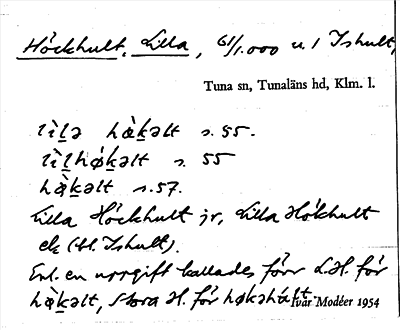 Höckhult, Lilla, 61/1.000 u. 1 Ishult,
Tuna sn, Tunaläns hd, Klm. l.
lìl̠ə hø̀k̠əlt s. 55.
lìl̠hǿk̠əlt s. 55
hø̀k̠əlt s. 57.
Lilla Höckhult jr, Lilla Hökhult
ek (bl. Ishult).
Enl. en uppgift kallades förr L.H. för
hø̀k̠əlt, Stora H. för høkəhúlt.
Ivar Modéer 1954